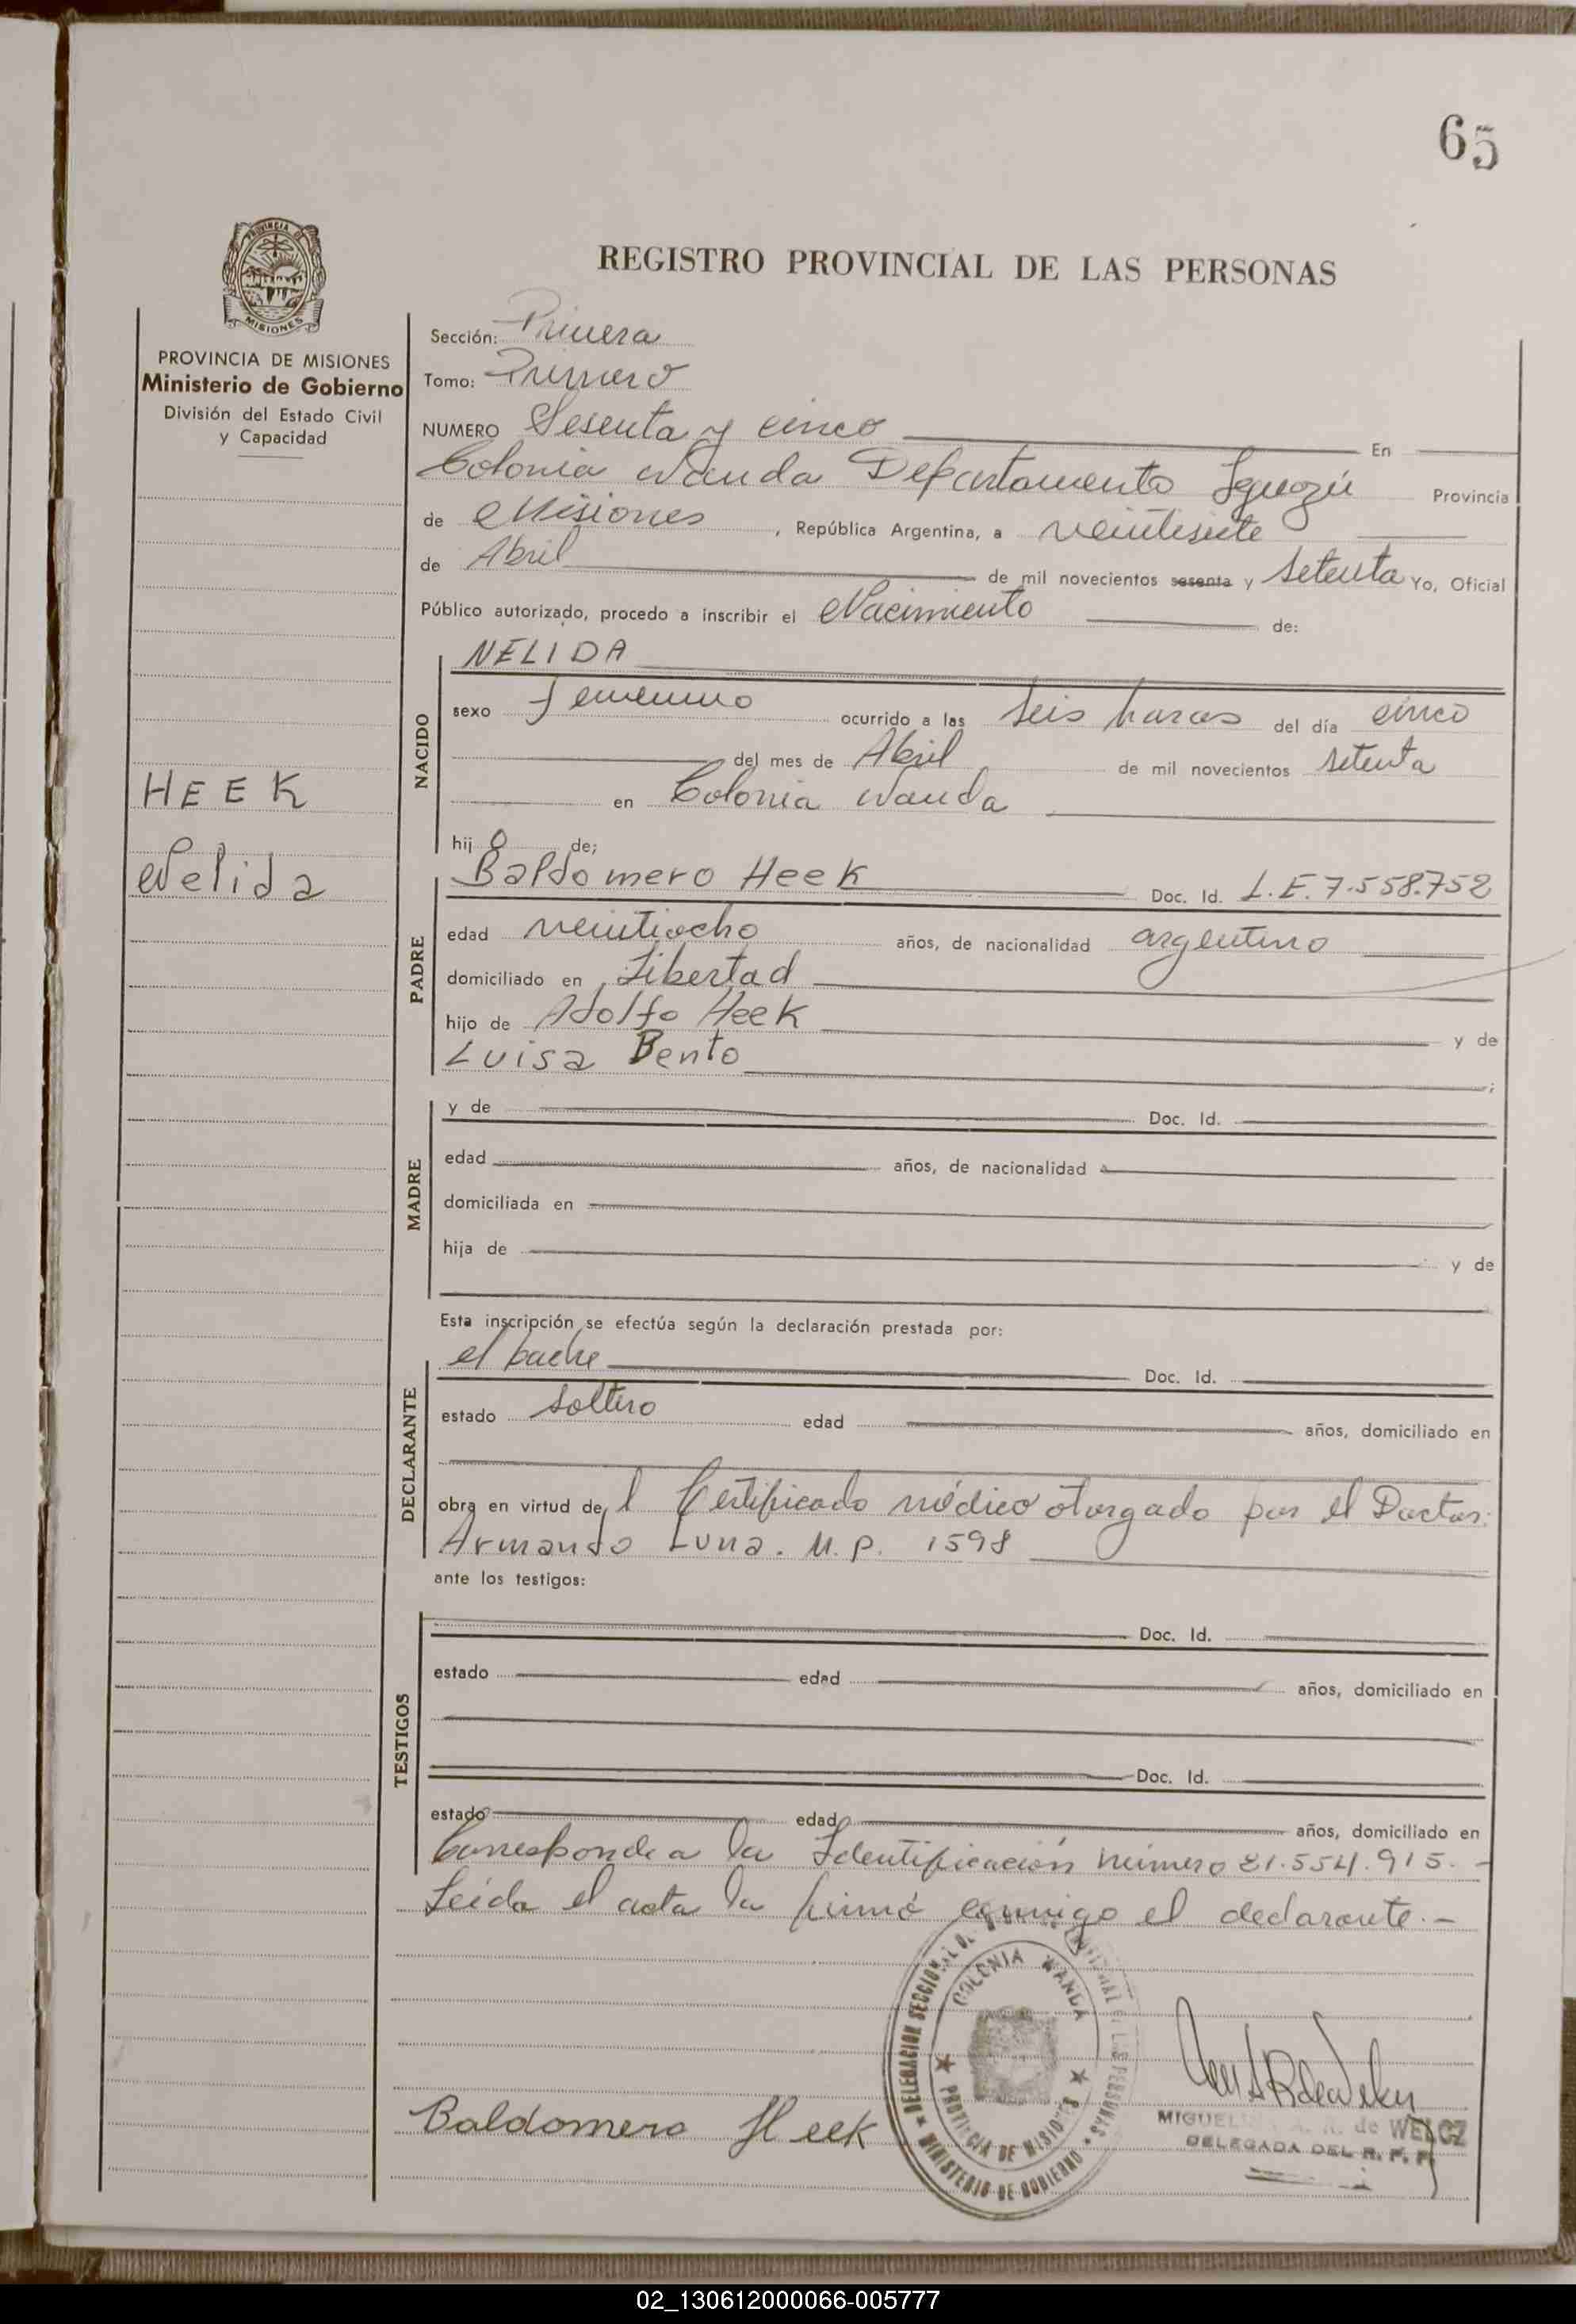 65
REGISTRO PROVINCIAL DE LAS PERSONAS
PROVINCIA DE MISIONES
Ministerio de Gobierno
División del Estado Civil
y Capacidad
HEEK
Nelida
Sección: Primera
Tomo: Primero
NUMERO Sesenta y cinco En
Colonia Wanda Departamento Iguazú Provincia
de Misiones, República Argentina, a veintisiete
de Abril de mil novecientos sesenta y setenta Yo, Oficial
Público autorizado, procedo a inscribir el Nacimiento de:
NACIDO
NELIDA
sexo femenino ocurrido a las seis horas del día cinco
del mes de Abril de mil novecientos setenta
en Colonia Wanda
hij a de;
PADRE
Baldomero Heek Doc. Id. L.E. 7.558.752
edad veintiocho años, de nacionalidad argentino
domiciliado en Libertad
hijo de Adolfo Heek y de
Luisa Bento ;
MADRE
y de Doc. Id.
edad años, de nacionalidad
domiciliada en
hija de y de
Esta inscripción se efectúa según la declaración prestada por:
DECLARANTE
el padre Doc. Id.
estado soltero edad años, domiciliado en
obra en virtud del Certificado médico otorgado por el Doctor:
Armando Luna. M.P. 1598
ante los testigos:
TESTIGOS
Doc. Id.
estado edad años, domiciliado en
Doc. Id.
estado edad años, domiciliado en
Corresponde a la Identificación número 21.554.915.-
Leída el acta la firmó conmigo el declarante.-
DELEGACION SECCIONAL DE LAS PERSONAS
COLONIA WANDA
PROVINCIA DE MISIONES
MINISTERIO DE GOBIERNO
Baldomero Heek
MIGUEL de WELCZ
DELEGADA DEL R. P. P.
02_130612000066-005777